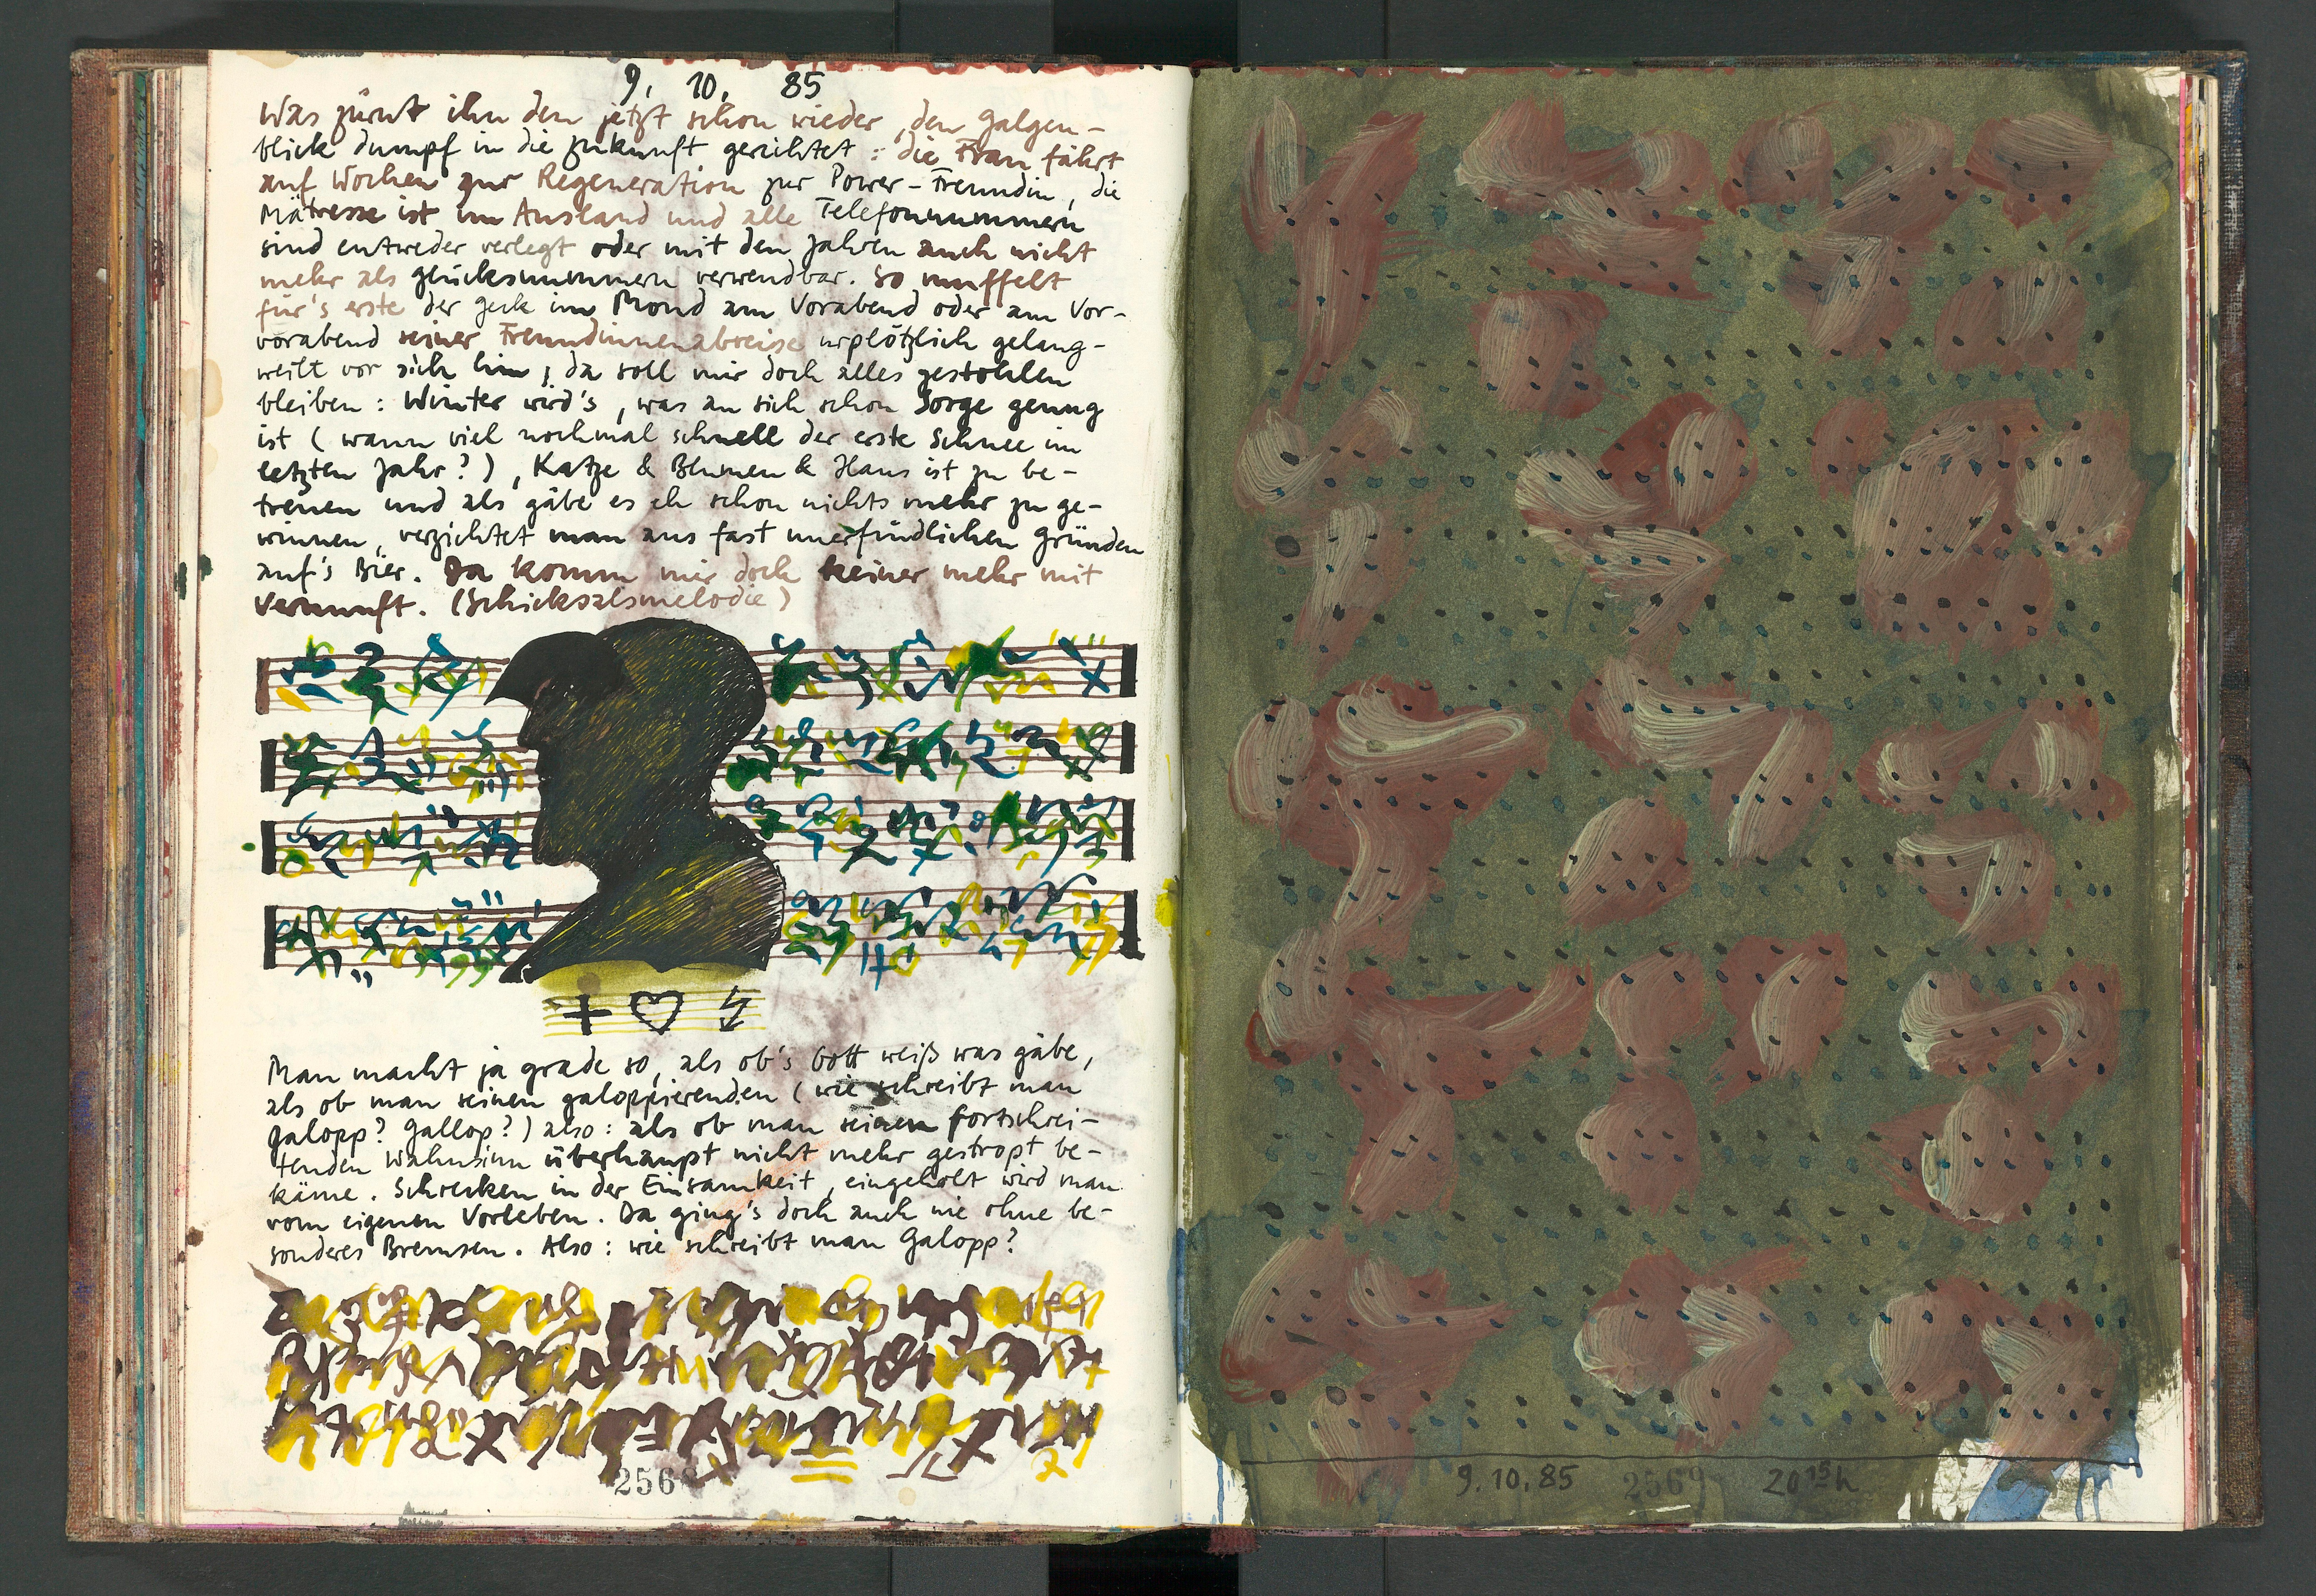 9. 10. 85
Was zürnt ihn den jetzt schon wieder, den Galgen-
blick dumpf in die Zukunft gerichtet: die Frau fährt
auf Wochen zur Regeneration zur Power-Freundin, die
Mätresse ist im Ausland und alle Telefonnummern
sind entweder verlegt oder mit den Jahren auch nicht
mehr als Glücksnummern verwendbar. So muffelt
für's erste der Geck im Mond am Vorabend oder am Vor-
vorabend seiner Freundinnenabreise urplötzlich gelang-
weilt vor sich hin; da soll mir doch alles gestohlen
bleiben: Winter wird's, was an sich schon Sorge genug
ist (wann viel nochmal schnell der erste Schnee im
letzten Jahr?), Katze & Blumen & Haus ist zu be-
treuen und als gäbe es eh schon nichts mehr zu ge-
winnen, verzichtet man aus fast unerfindlichen Gründen
auf's Bier. Da komm mir doch keiner mehr mit
Vernunft. (Schicksalsmelodie)
Man macht ja grade so, als ob's Gott weiß was gäbe,
als ob man seinen galoppierenden (wie schreibt man
Galopp? Gallop?) also: als ob man seinen fortschrei-
tenden Wahnsinn überhaupt nicht mehr gestropt be-
käme. Schrecken in der Einsamkeit, eingeholt wird man
vom eigenen Vorleben. Da ging's doch auch nie ohne be-
sonderes Bremsen. Also: wie schreibt man Galopp?
256
9.10.85 2569 20 15 h